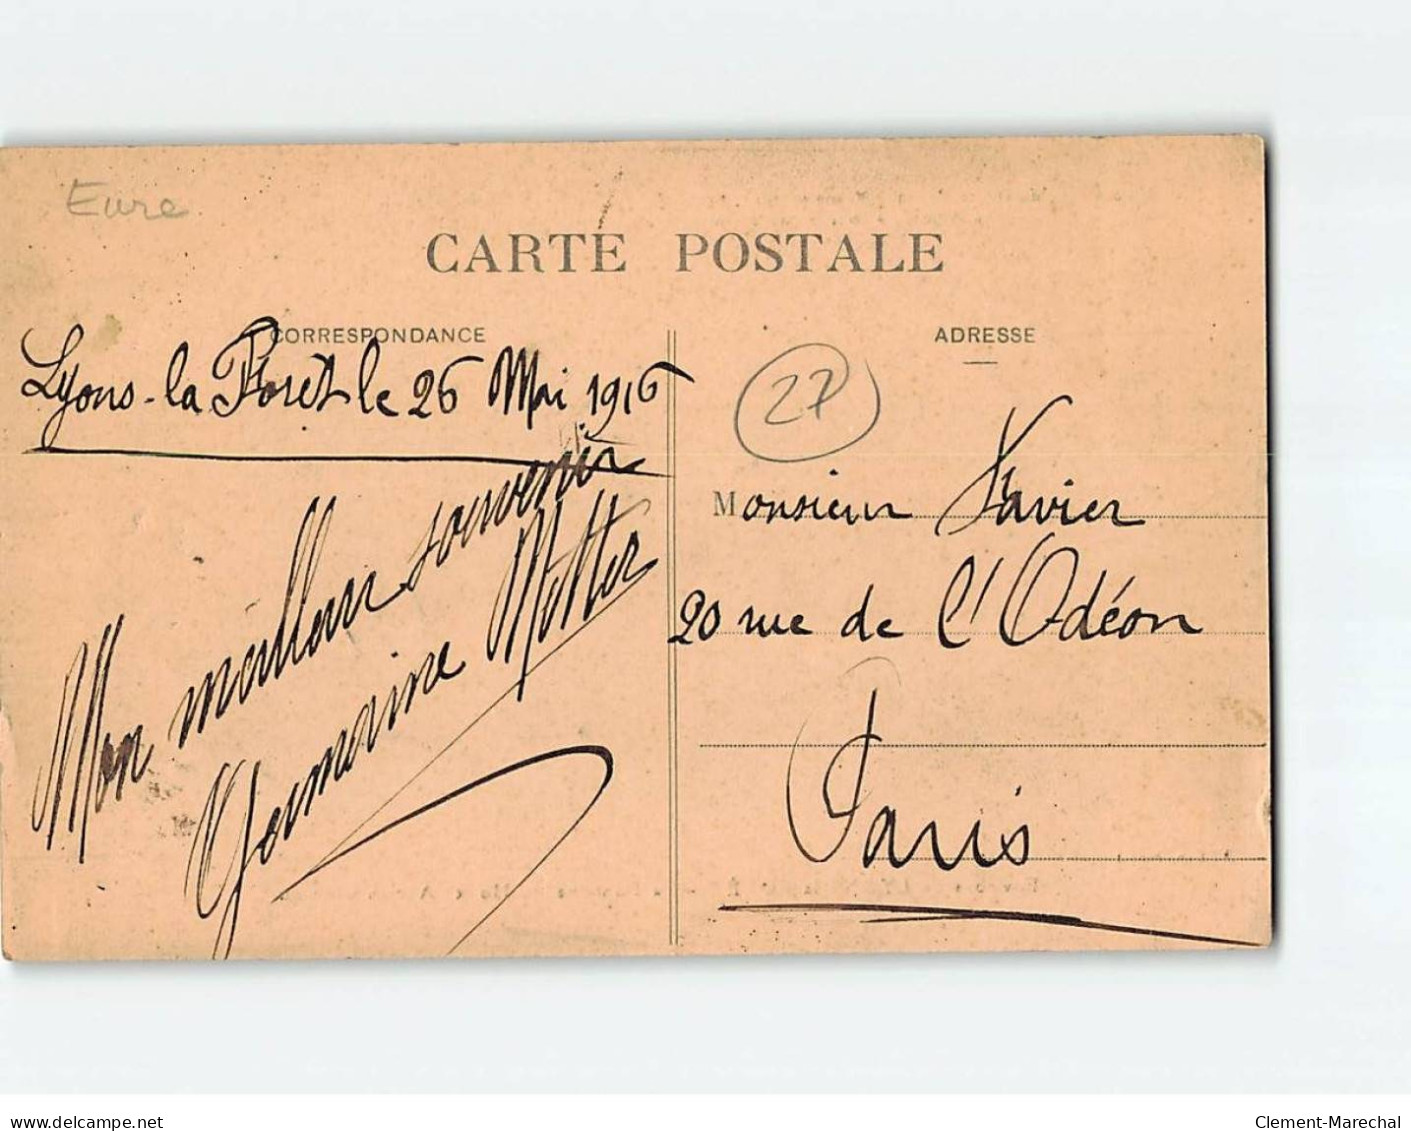 Eure
CARTE POSTALE
CORRESPONDANCE
Lyons-la Forêt le 26 Mai 1916
Mon meilleur souvenir
Germaine
ADRESSE
27
Monsieur Xavier
20 rue de l'Odéon
Paris
delcampe.net
Clement-Marechal